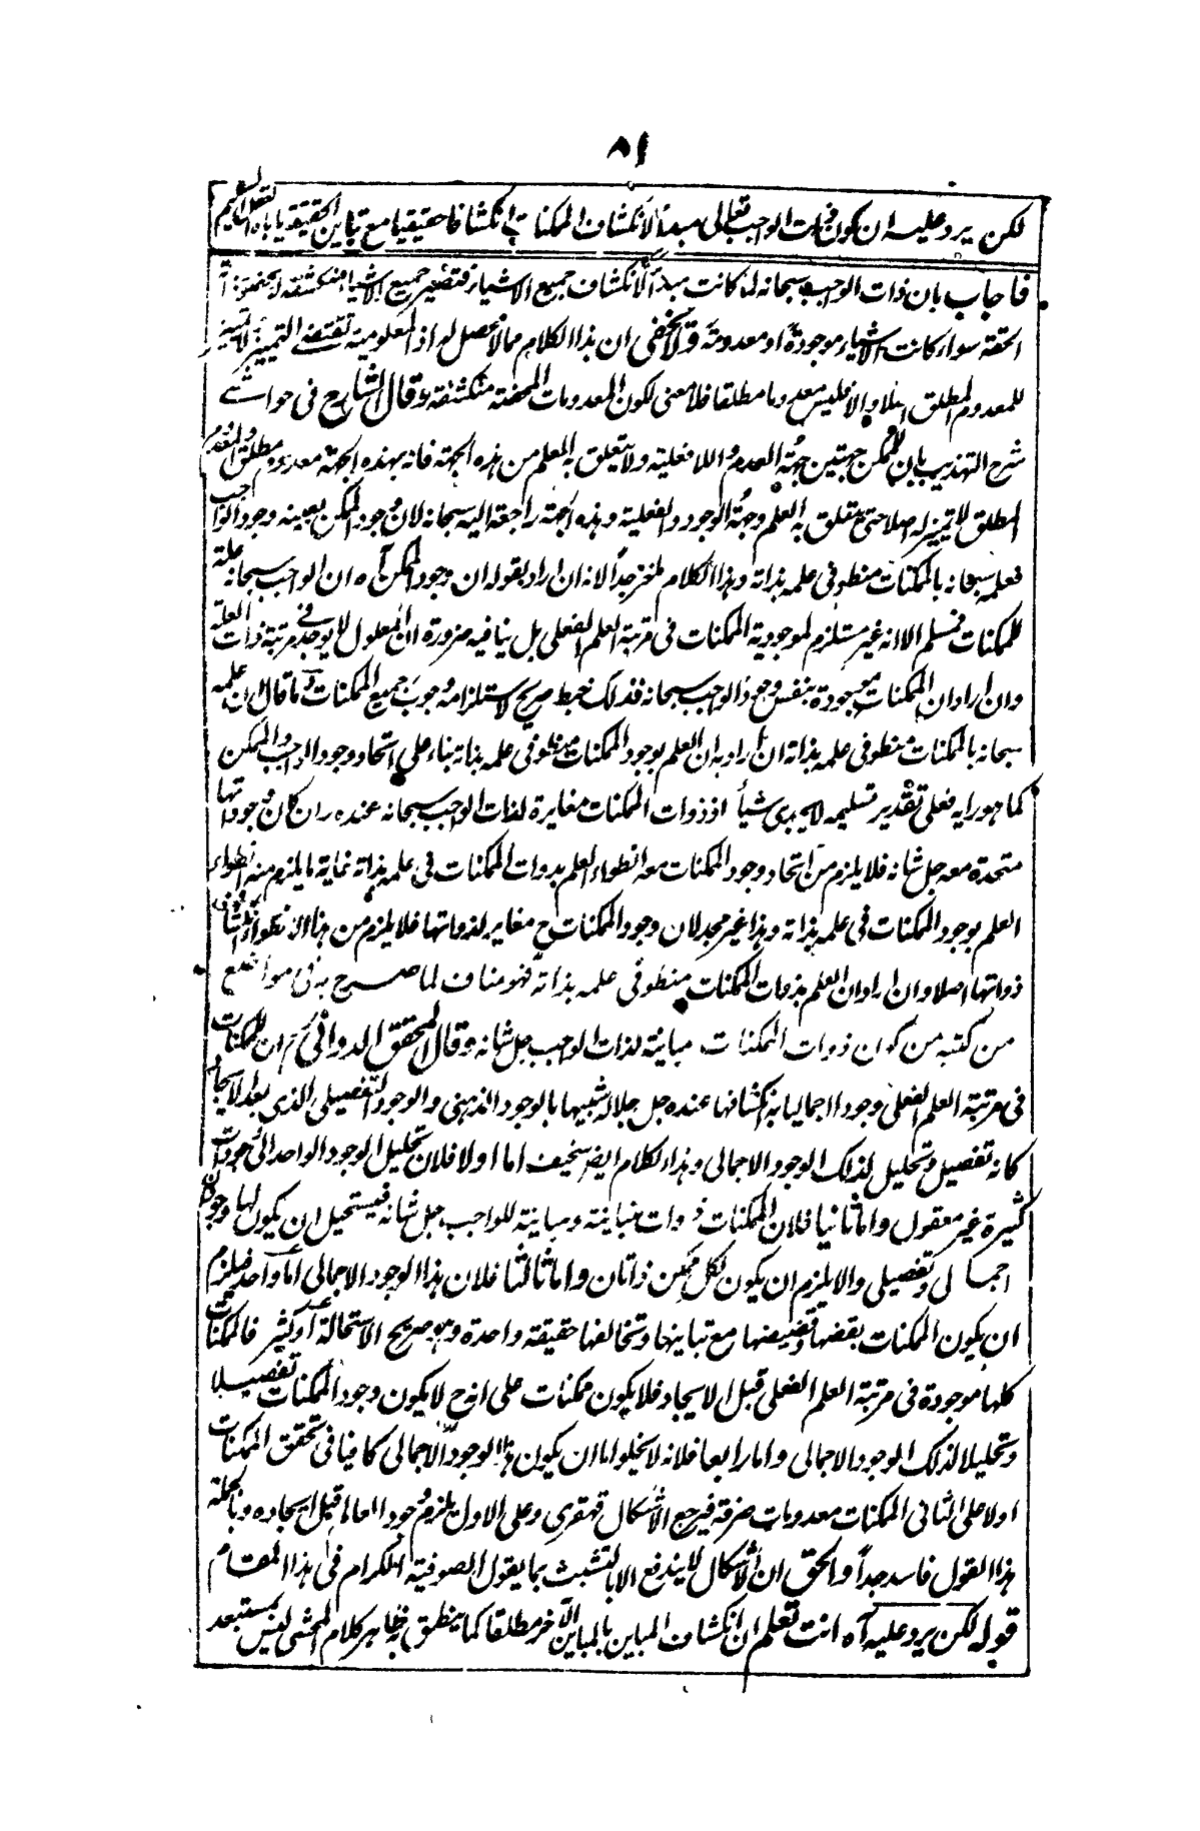 ٨١
لكن يرد عليه ان كون ذات الواجب تعالى مبدأ لانكشاف الممكنات انكشافا حقيقيا مع تباين الحقيقة يأباه العقل السليم
فاجاب بان ذات الواجب سبحانه لما كانت مبدأ لانكشاف جميع الاشياء فتصير جميع الاشياء منكشفة
سواء كانت الاشياء موجودة او معدومة ولا يخفى ان هذا الكلام مما لا محصل له اذ المعلومية تقتضى التميز ولا تميز
للمعدوم المطلق اصلا والا فليس معدوما مطلقا فلا معنى لكون المعدومات المحضة منكشفة وقال الشارح فى حواشى
شرح التهذيب بان للممكن جهتين جهة العدم واللا فعلية ولا يتعلق به العلم من هذه الجهة فانه بهذه الجهة معدوم مطلق والمعدوم
المطلق لا تميز له اصلا حتى يتعلق به العلم وجهة الوجود والفعلية وهذه الجهة راجعة اليه سبحانه لان وجود الممكن بعينه وجود الواجب
فعلمه سبحانه بالممكنات منطو فى علمه بذاته وهذا الكلام ملغز جداً لانه ان اراد بقوله ان وجود الممكن آه ان الواجب سبحانه علة
للممكنات فمسلم الا انه غير مستلزم لموجودية الممكنات فى مرتبة العلم الفعلى بل ينافيه ضرورة ان المعلول لا يوجد فى مرتبة ذات العلة
وان اراد ان الممكنات موجودة بنفس وجود الواجب سبحانه فذلك خبط صريح لاستلزامه وجوب جميع الممكنات وما قال ان علمه
سبحانه بالممكنات منطو فى علمه بذاته ان اراد به ان العلم بوجود الممكنات منطو فى علمه بذاته بناء على اتحاد وجود الواجب والممكن
كما هو رايه فعلى تقدير تسليمه لا يجدى شيأ اذ ذوات الممكنات مغايرة لذات الواجب سبحانه عنده وان كان وجوداتها
متحدة معه جل شانه فلا يلزم من اتحاد وجود الممكنات معه انطواء العلم بذوات الممكنات فى علمه بذاته غاية ما يلزم منه انطواء
العلم بوجود الممكنات فى علمه بذاته وهذا غير مجد لان وجود الممكنات ح مغاير لذواتها فلا يلزم من هذا
ذواتها اصلا وان اراد ان العلم بذوات الممكنات منطو فى علمه بذاته فهو مناف لما صرح به فى مواضع
من كتبه من كون ذوات الممكنات مباينة لذات الواجب جل شانه وقال المحقق الدوانى رح ان للممكنات
فى مرتبة العلم الفعلى وجودا اجماليا به انكشافها عنده جل جلاله شبيها بالوجود الذهنى والوجود التفصيلى الذى بعد الايجاد
كانه تفصيل وتحليل لذلك الوجود الاجمالى وهذا الكلام ايضا سخيف اما اولا فلان تحليل الوجود الواحد الى وجودات
كثيرة غير معقول واما ثانيا فلان الممكنات ذوات متباينة ومباينة للواجب جل شانه فيستحيل ان يكون لها وجودان
اجمالى وتفصيلى والا يلزم ان يكون لكل ممكن ذاتان واما ثالثا فلان هذا الوجود الاجمالى اما واحد فيلزم
ان يكون الممكنات بقضها وقضيضها مع تباينها وتخالفها حقيقة واحدة وهو صريح الاستحالة او كثير فالممكنات
كلها موجودة فى مرتبة العلم الفعلى قبل الايجاد فلا يكون ممكنات على انه ح لا يكون وجود الممكنات تفصيلا
وتحليلا لذلك الوجود الاجمالى واما رابعا فلانه لا يخلو اما ان يكون هذا الوجود الاجمالى كافيا فى تحقق الممكنات
اولا على الثانى الممكنات معدومات صرفة فيرجع الاشكال قهقرى وعلى الاول يلزم وجود العالم قبل ايجاده وبالجملة
هذا القول فاسد جداً والحق ان الاشكال لا يندفع الا بالتشبث بما يقول الصوفية الكرام فى هذا المقام
قوله لكن يرد عليه آه انت تعلم ان انكشاف المباين بالمباين الآخر مطلقا كما ينطق به ظاهر كلام المحشى ليس بمستبعد